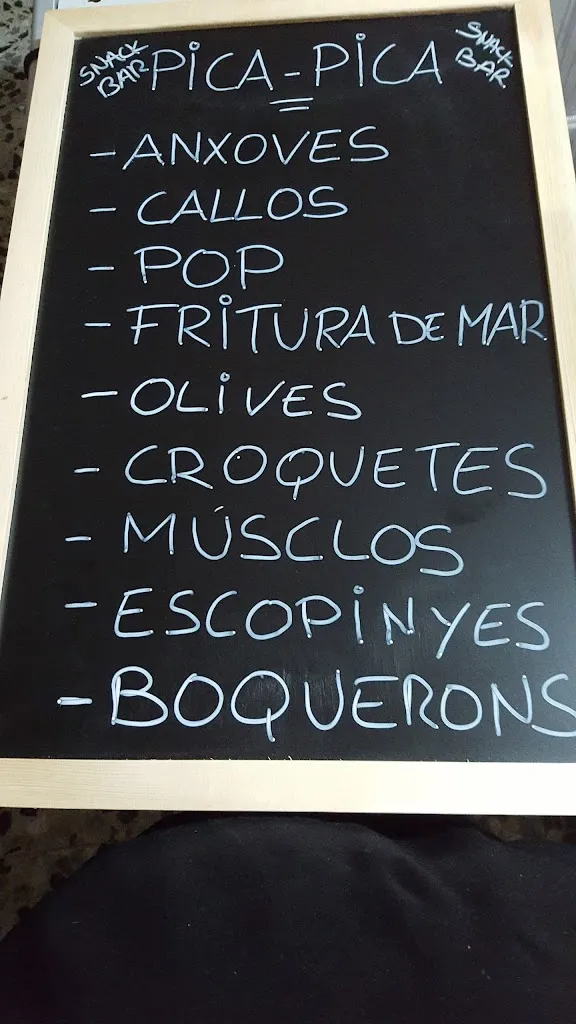 SNACK BAR
PICA-PICA
SNACK BAR
- ANXOVES
- CALLOS
- POP
- FRITURA DE MAR
- OLIVES
- CROQUETES
- MÚSCLOS
- ESCOPINYES
- BOQUERONS